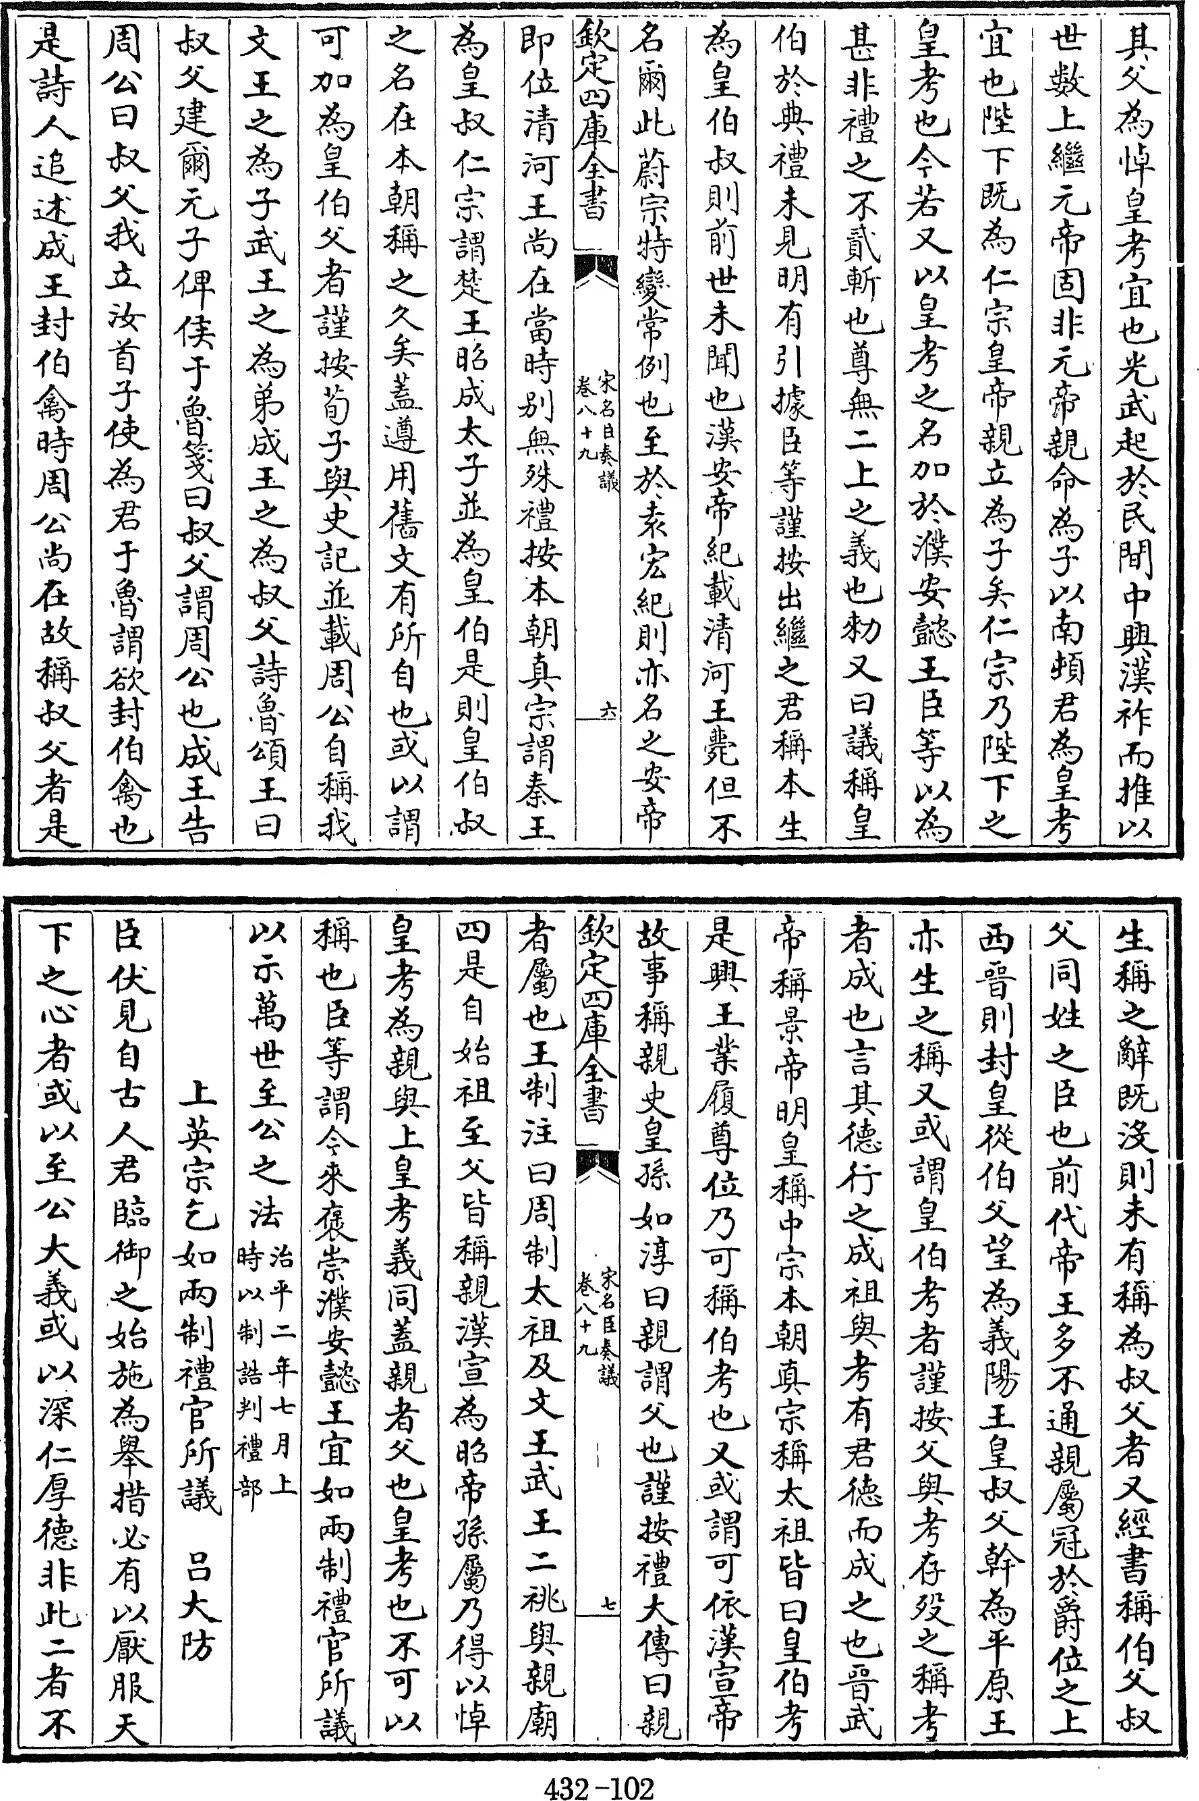 其父為悼皇考宜也光武起於民間中興漢祚而推以
世數上繼元帝固非元帝親命為子以南頓君為皇考
宜也陛下既為仁宗皇帝親立為子矣仁宗乃陛下之
皇考也今若又以皇考之名加於濮安懿王臣等以為
甚非禮之不貳斬也尊無二上之義也勑又曰議稱皇
伯於典禮未見明有引據臣等謹按出繼之君稱本生
為皇伯叔則前世未聞也漢安帝紀載清河王薨但不
名爾此蔚宗特變常例也至於袁宏紀則亦名之安帝
欽定四庫全書
宋名臣奏議
卷八十九
六
即位清河王尚在當時別無殊禮按本朝真宗謂秦王
為皇叔仁宗謂楚王昭成太子並為皇伯是則皇伯叔
之名在本朝稱之久矣蓋遵用舊文有所自也或以謂
可加為皇伯父者謹按荀子與史記並載周公自稱我
文王之為子武王之為弟成王之為叔父詩魯頌王曰
叔父建爾元子俾侯于魯箋曰叔父謂周公也成王告
周公曰叔父我立汝首子使為君于魯謂欲封伯禽也
是詩人追述成王封伯禽時周公尚在故稱叔父者是
生稱之辭既沒則未有稱為叔父者又經書稱伯父叔
父同姓之臣也前代帝王多不通親屬冠於爵位之上
西晉則封皇從伯父望為義陽王皇叔父幹為平原王
亦生之稱又或謂皇伯考者謹按父與考存歿之稱考
者成也言其德行之成祖與考有君德而成之也晉武
帝稱景帝明皇稱中宗本朝真宗稱太祖皆曰皇伯考
是興王業履尊位乃可稱伯考也又或謂可依漢宣帝
故事稱親史皇孫如淳曰親謂父也謹按禮大傳曰親
欽定四庫全書
宋名臣奏議
卷八十九
七
者屬也王制注曰周制太祖及文王武王二祧與親廟
四是自始祖至父皆稱親漢宣為昭帝孫屬乃得以悼
皇考為親與上皇考義同蓋親者父也皇考也不可以
稱也臣等謂今來褒崇濮安懿王宜如兩制禮官所議
以示萬世至公之法治平二年七月上
時以制誥判禮部
上英宗乞如兩制禮官所議　呂大防
臣伏見自古人君臨御之始施為舉措必有以厭服天
下之心者或以至公大義或以深仁厚德非此二者不
432-102